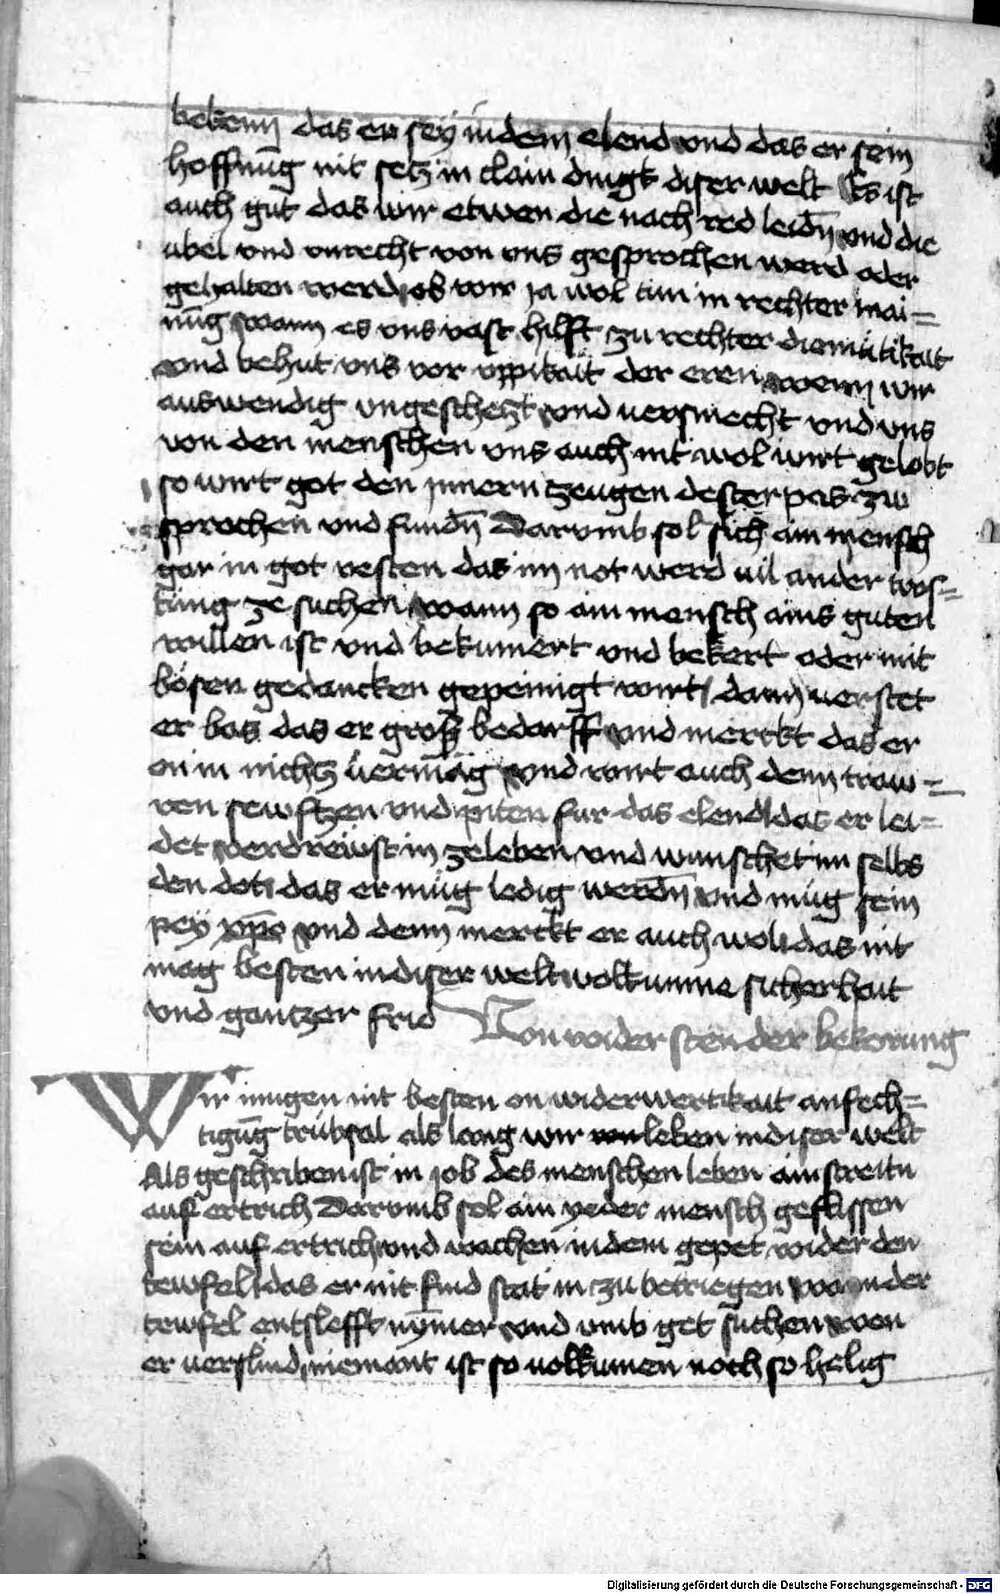 bekenn das er sey in dem elend vnd das er sein
hoffnu̅g nit setz in clain dingk diser welt Es ist
auch gut das wir etwen die nach red leid̅n vnd die
übel vnd vnrecht von vns gesprochen werd oder
gehalten werd ob wir ja wol tun in rechter mai=
nu̅g wann es vns vast hilft zu rechter diemütikait
vnd behut vns vor vppikait der eren wenn wir
auswendig vngeschetzt vnd versmecht vnd vns
von den menschen vns auch nit wol wirt gelobt
so wirt got den jnnern zeugen dester pas zw
sprochen vnd fund̅n Darvmb sol sich ain mensch
gar in got vesten das im not werd vil ander tros=
tung ze suchen wann so ain mensch ains guten
willen ist vnd bekumert vnd bekert oder mit
bösen gedancken gepeinigt wirt dann verstet
er bas das er grosz bedarff vnd merckt das er
on in nichtz vermäg vnd wirt auch denn traw=
ren sewftzen vnd piten fur das elend das er lei=
det verdreüst in ze leben vnd wunschet im selbs
den dot das er müg ledig werd̅n vnd müg sein
pey xp̅o vnd denn merckt er auch wol das nit
mag besten in diser welt volkumne sicherhait
vnd gantzer frid Von widersten der bekorung
Wir mugen nit besten on widerwertikait anfech=
tigu̅g trübsal als lang wir leben in diser welt
Als geschriben ist in job des menschen leben ain streitn
auf ertrich Darvmb sol ain yeder mensch geflissen
sein auf ertrich vnd wachen in dem gepet wider den
tewfel das er nit find stat in zu betriegen wann der
tewfel entslefft ny̅mer vnd vmb get suchen wen
er verslind niemant ist so volkumen noch so helig
Digitalisierung gefördert durch die Deutsche Forschungsgemeinschaft - DFG